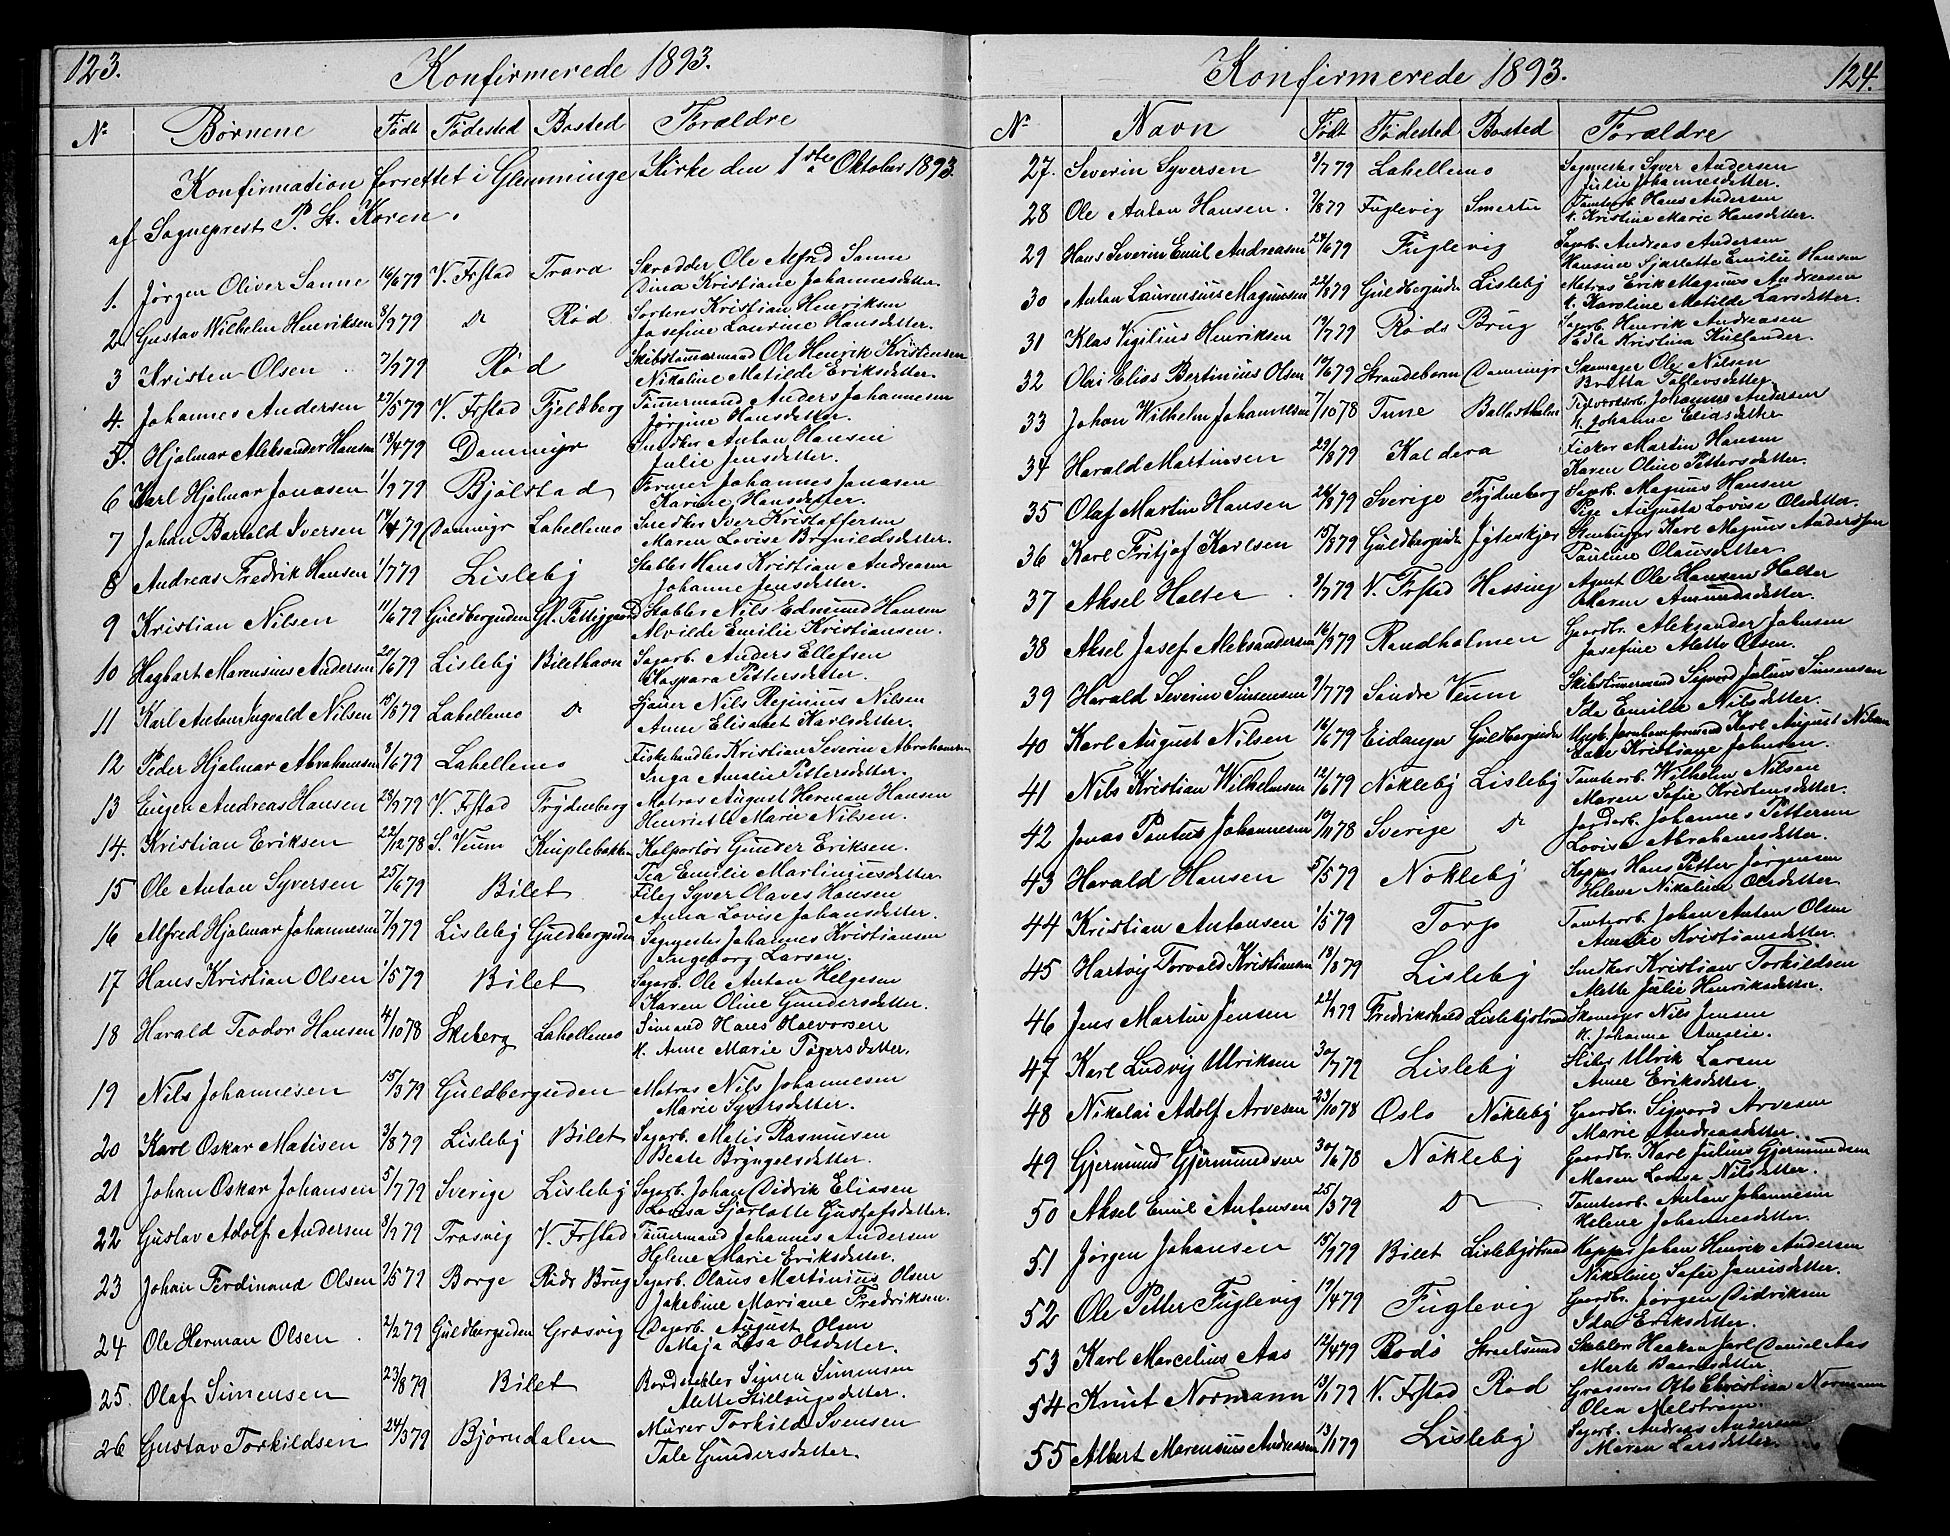 123.
Konfirmerede 1893.
No Børnene Født Fødested Bosted Forældre
Konfirmation forrettet i Glemminge Kirke den 1ste Oktober 1893
af Sogneprest P. St. Koren.
1. Jörgen Oliver Sanne 16/6 79 V. Frstad Trara Skrædder Ole Alfred Sanne
Dina Kristiane Johannesdetter.
2 Gustav Wilhelm Henriksen 3/9 79 do Rød Kristian Henriksen
Josefine Laurine Hansdetter.
3 Kristen Olsen 7/9 79 Rød Skibstømmermand Ole Henrik Kristensen
Nikoline Matilde Eriksdetter.
4. Johannes Andersen 27/5 79 V. Frstad Fjeldberg Tømmermand Anders Johannesen
Jørgine Hansdetter.
5. Hjalmar Aleksander Hansen 13/4 79 Dammigr Snedker Anton Hansen
Julie Jensdetter.
6 Karl Hjalmar Jonasen 1/9 79 Bjølstad Former Johannes Jonasen
Karine Hansdetter.
7 Johan Bartold Iversen 14/4 79 Dammigr Lahellemo Snedker Iver Kristoffersen
Maren Lovise Brynildsdetter.
8 Andreas Fredrik Hansen 1/7 79 Lisleby Stabler Hans Kristian Andreasen
Johanne Jensdetter.
9 Kristian Nilsen 11/6 79 Guldbergsiden Gl. Fattiggaard Stabler Nils Edmund Hansen
Alvilde Emilie Kristiansen.
10 Hagbart Marensius Andersen 27/6 79 Lisleby Bilethavn Sagarb. Anders Ellefsen
Kaspara Pettersdetter.
11 Karl Anton Ingvald Nilsen 15/8 79 Lahellemo do Ejaner Nils Reginius Nilsen
Anne Elisabet Karlsdetter.
12 Peder Hjalmar Abrahamsen 8/6 79 Lahellemo Fiskehandler Kristian Severin Abrahamsen
Inga Amalie Pettersdetter.
13 Eugen Andreas Hansen 23/9 79 V. Frstad Frydenberg Matros August Herman Hansen
Henriette Marie Nilsen.
14. Kristian Eriksen 22/12 78 S. Veum Kniplebakken Kolportør Gunder Eriksen.
Tea Emilie Martiniusdetter
15 Ole Anton Syversen 25/6 79 Bilet Filej Syver Olaves Hansen
Anna Lovise Johansdetter.
16 Alfred Hjalmar Johannesen 7/9 79 Lisleby Guldbergsiden Sagmester Johannes Kristiansen
Ingeborg Larsen.
17 Hans Kristian Olsen 1/5 79 Bilet Sagarb. Ole Anton Helgesen
Karen Oline Gundersdetter.
18 Harald Teodor Hansen 4/10 78 Skeberg Lahellemo Sømand Hans Halvorsen
K. Anne Marie Tøgersdetter.
19 Nils Johannesen 15/3 79 Guldbergsiden Matros Nils Johannesen
Marie Syversdetter.
20 Karl Oskar Matisen 3/8 79 Lisleby Bilet Sagarb. Matis Rasmusen
Beate Bryngelsdetter.
21 Johan Oskar Johansen 5/7 79 Sverige Lisleby Sagarb. Johan Didrik Eliasen
Lovisa Sjarlotte Gustafsdetter.
22 Gustav Adolf Andersen 3/9 79 Trosvig V. Frstad Tømmermand Johannes Andersen
Hylene Marie Eriksdetter.
23 Johan Ferdinand Olsen 2/5 79 Borge Røds Brug Sagarb. Olaus Martinius Olsen
Jakobine Mariane Fredriksen.
24 Ole Herman Olsen 2/2 79 Guldbergsiden Gresvig Dagarb. August Olsen
Maja Lisa Olsdetter.
25. Olaf Simensen 23/8 79 Bilet Bordstabler Simen Simensen
Alette Stillaugsdetter.
26 Gustav Torkildsen 24/3 79 Bjørndalen Murer Torkild Svensen
Tale Gundersdetter.
Konfirmerede 1893.
124.
No Navn Født Fødested Bosted Forældre
27. Severin Syversen 3/7 79 Lahellemo Sagmester Syver Andersen
Julie Johannesdetter.
28 Ole Anton Hansen. 3/8 79 Fuglevig Smertu Tomtearb. Hans Andersen
K. Kristine Marie Hansdetter.
29 Hans Severin Emil Andreasen 24/6 79 Fuglevig Sagarb. Andreas Andersen
Hansine Sjarlotte Emilie Hansen
30 Anton Laurensius Magnusen 22/8 79 Guldbergsiden Lisleby Matros Erik Magnus Andreasen
K. Karoline Matilde Larsdetter.
31 Klas Vigilius Henriksen 19/7 79 Røds Brug Sagarb. Henrik Andreasen
Edla Kristina Kullander.
32 Olai Elias Bertinius Olsen 10/6 79 Strandeborm Dammigr Skomager Ole Nilsen
Britta Tollevsdetter
33 Johan Wilhelm Johannesen 7/10 78 Tune Ballastholm Teglværksarb. Johannes Andersen
K. Johanne Eliasdetter
34 Harald Martinsen 29/8 79 Kaldera Fisker Martin Hansen
Karen Oline Pettersdetter.
35 Olaf Martin Hansen 28/8 79 Sverige Frydenberg Sagarb. Magnus Hansen
Pige Augusta Lovise Olsdetter.
36 Karl Fritjof Karlsen 15/8 79 Guldbergsiden Stenhugger Karl Magnus Anderssen
Pauline Olausdetter.
37 Aksel Holter 3/7 79 V. Frstad Hessing Agent Ole Hansen Holter
Maren Amundsdetter.
38 Aksel Josef Aleksandersen 16/9 79 Rundholmen Gaardbr. Aleksander Johnsen
Josefine Mette Olsen.
39 Harald Severin Simensen 9/7 79 Søndre Veum Skibstømmermand Sigvard Julius Simensen
Ida Emilie Nilsdetter.
40 Karl August Nilsen 16/6 79 Eidanger Guldbergsiden Karl August Nilsen
Kristiane Johnsen.
41 Nils Kristian Wilhelmsen 12/6 79 Nøkleby Lisleby Tomtearb. Wilhelm Nilsen
Maren Sofie Kristensdetter.
42 Jonas Pontus Johannesen 10/11 78 Sverige do Jordarb. Johannes Pettersen
Lovisa Abrahamsdetter.
43 Harald Hansen 5/5 79 Nøkleby Kapper Hans Petter Jørgensen
Helene Nikoline Olsdetter
44 Kristian Antonsen 1/5 79 Torp Tomtearb. Johan Anton Olsen
Amalie Kristiansdetter.
45 Hartvig Torvald Kristiansen 18/8 79 Lisleby Snedker Kristian Torkildsen
Alette Julie Henriksdetter.
46 Jens Martin Jensen 22/9 79 Fredrikshald Lislebystrand Skomager Nils Jensen
K. Johanne Amalie.
47 Karl Ludvig Ulriksen 30/7 79 Lisleby Skibsr. Ulrik Larsen
Anne Eriksdetter.
48 Nikolai Adolf Arvesen 23/10 78 Oslo Nøkleby Gaardbr. Sigvard Arvesen
Marie Andreasdetter.
49 Gjermund Gjermundsen 30/6 78 Nøkleby Gaardbr. Karl Julius Gjermundsen
Maren Lovise Nilsdetter.
50 Aksel Emil Antonsen 25/3 79 do Tomtearb. Anton Johannesen
Helene Johannesdetter.
51 Jørgen Johansen 15/9 79 Bilet Lislebystrand Kapper Johan Henrik Andersen
Nikoline Sofie Jensdetter.
52 Ole Petter Fuglevig 17/4 79 Fuglevig Gaardbr. Jørgen Didriksen
Ida Eriksdetter.
53 Karl Marcelius Aas 12/4 79 Rodø Strelsund Stabler Haakon Jarl Daniel Aas
Merte Baarsdetter
54 Knut Normann 13/6 79 V. Frstad Rød Grosserer Otto Christian Normann
Olea Melstrøm.
55 Albert Marensius Andreasen 13/6 79 Lisleby Sagarb. Andreas Andersen
Maren Larsdetter.